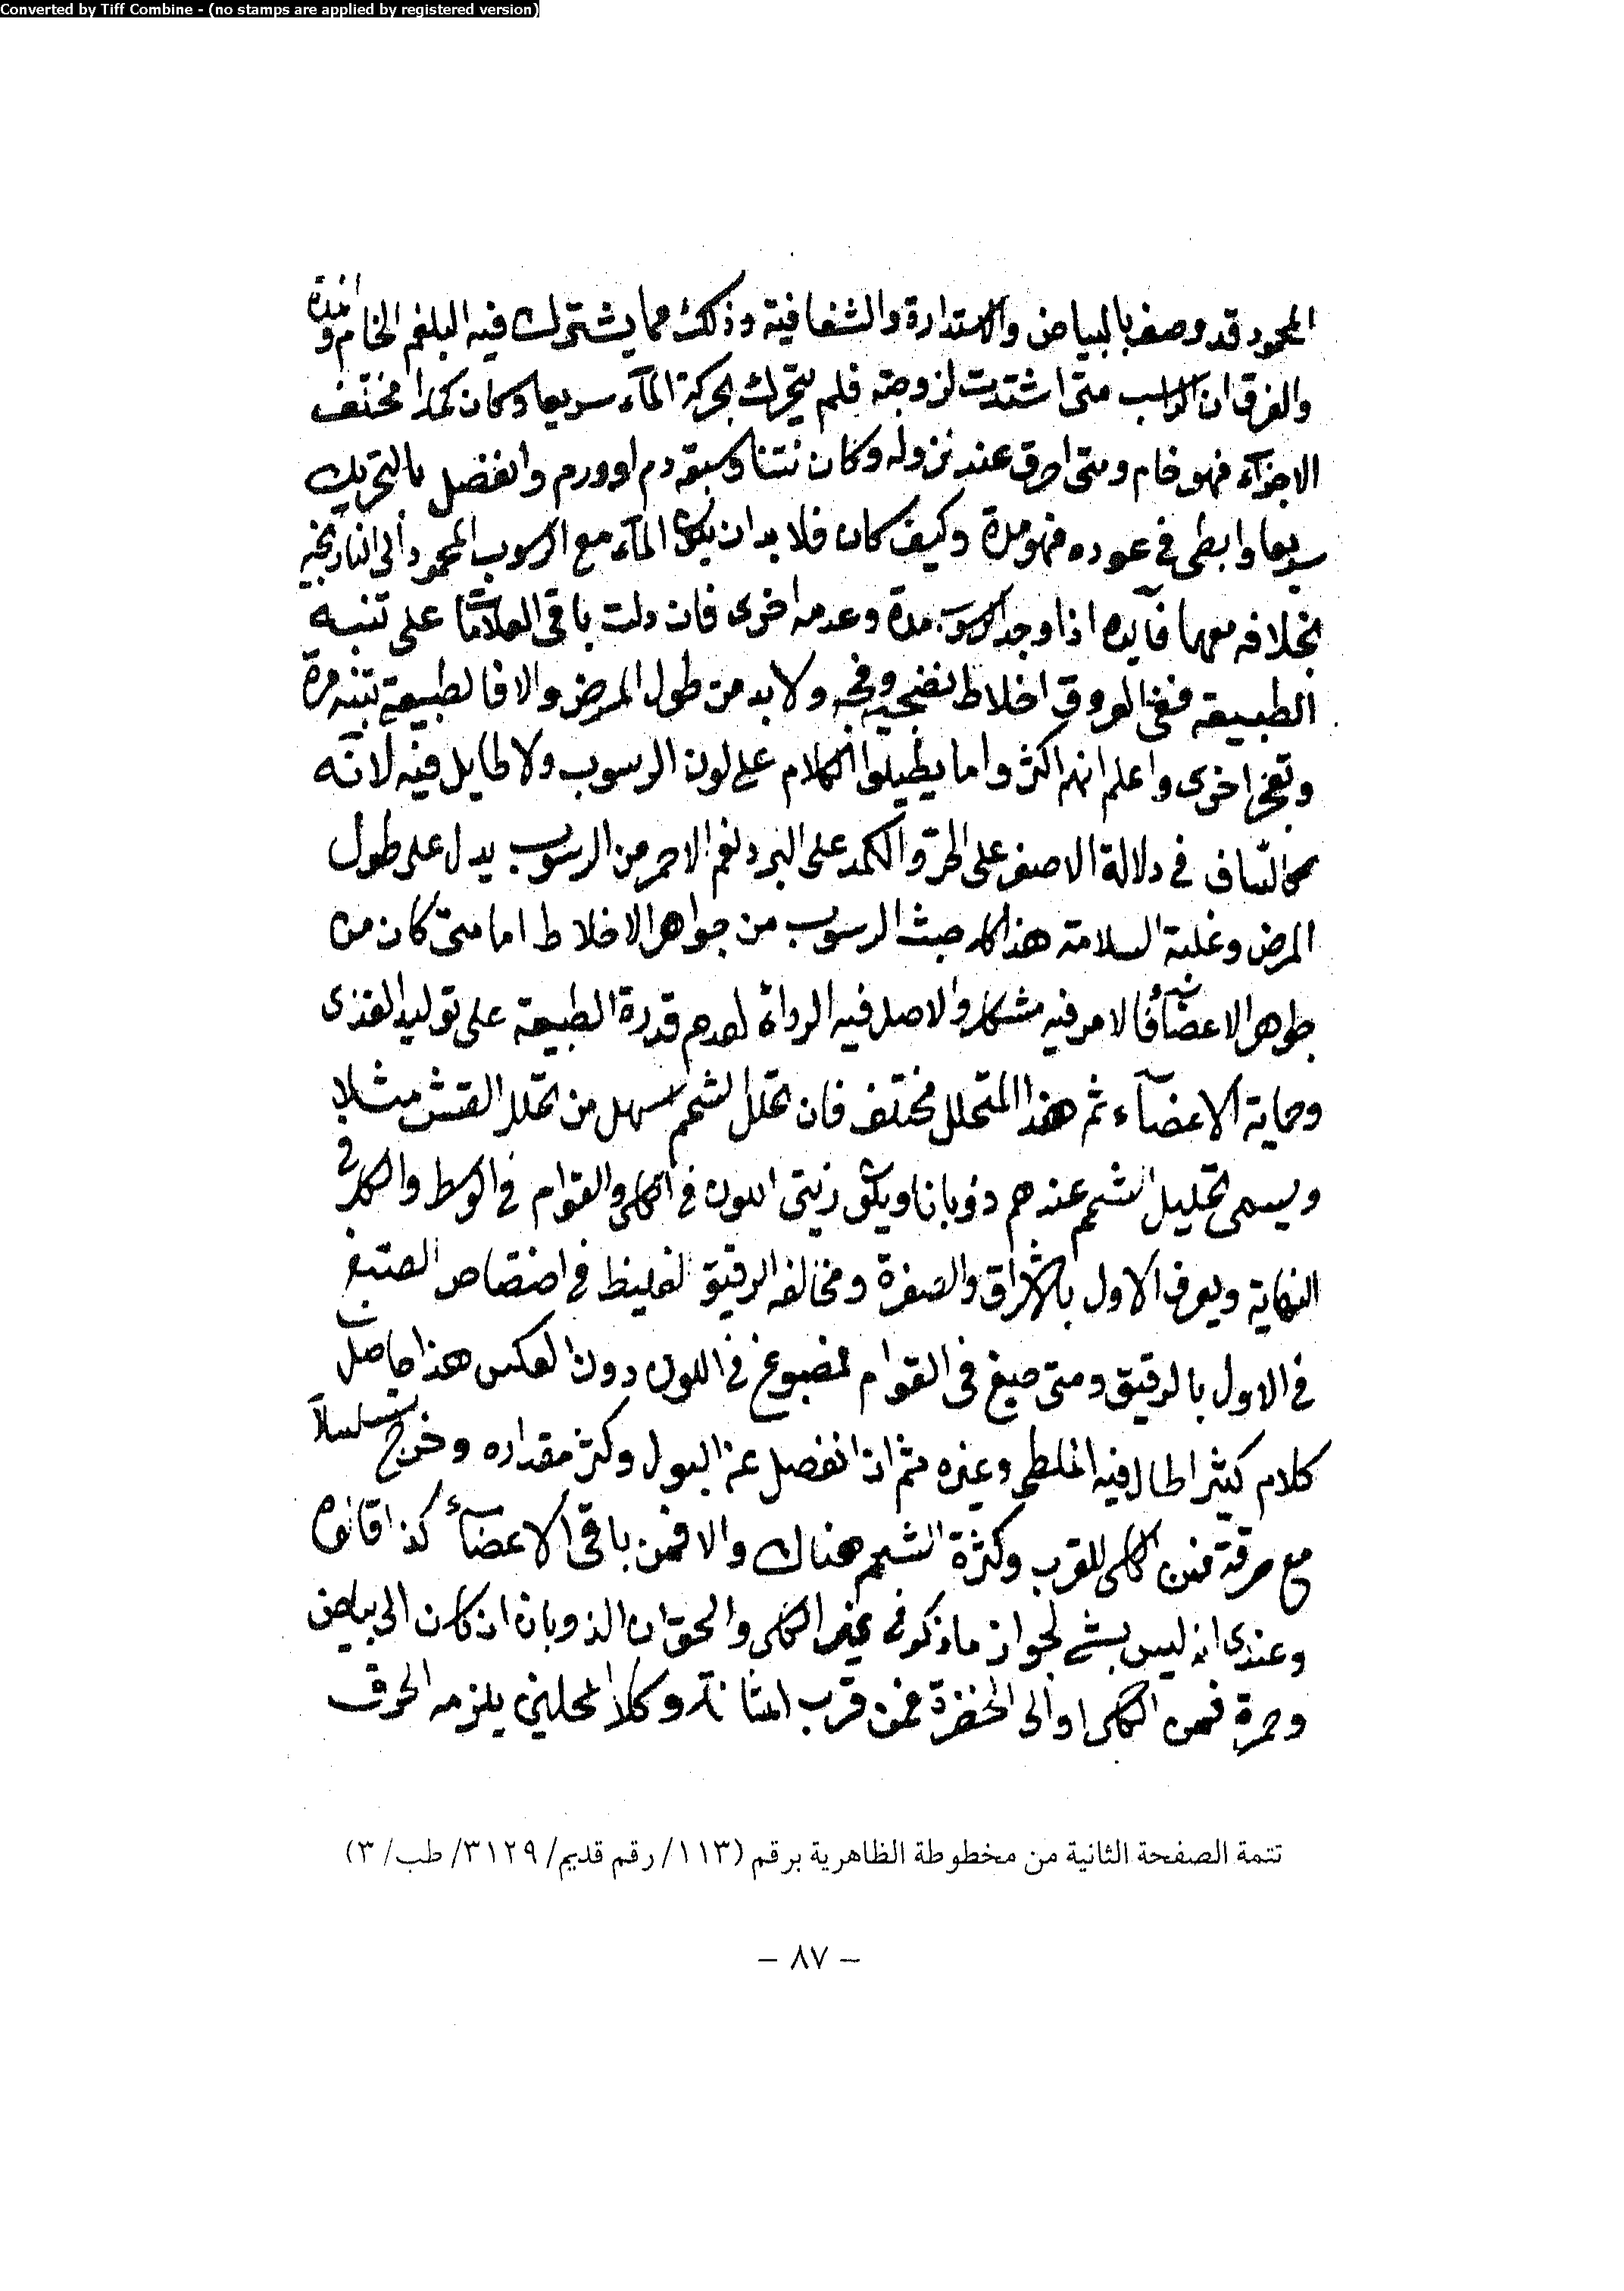 Converted by Tiff Combine - (no stamps are applied by registered version)
المحمود قد وصف بالبياض والاستدارة والشفافية وذلك مما يشترك فيه البلغم الخام والمدة
والفرق ان الراسب متى اشتدت لزوجته فلم يتحرك بحركة المآء سريعا وكان كمدا مختلف
الاجزآء فهو خام ومتى احرق عند نزوله وكان نتنا وسبقه دم او ورم وانفصل بالتحريك
سريعا وابطى في عوده فهو مدة وكيف كان فلا بد ان يكون المآء مع الرسوب المحمود الى النارنجية
بخلافه معهما فآيده اذا وجد الرسوب مدة وعدم اخرى فان دلت باقى العلامات على تنبه
الطبيعة ففى العروق اخلاط نضجيه وفجه ولا بد من طول المرض والا فالطبيعة تتنبه مرة
وتعجز اخرى واعلم انهم اكثروا ما يطيلوا الكلام على لون الرسوب ولا طايل فيه لانه
كالساف في دلالة الاصفر على الحر والكمد على البرد نعم الاحمر من الرسوب يدل على طول
المرض وغلبة السلامة هذا كله حيث الرسوب من جواهر الاخلاط اما متى كان من
جواهر الاعضآء فالامر فيه مشكل والاصل فيه الرداة لعدم قدرة الطبيعة على توليد الغذى
وحماية الاعضآء ثم هذا المتحلل مختلف فان تحلل الشحم اسهل من تحلل القشر مثلا
ويسمى تحليل الشحم عندهم ذوبانا ويكون زيتى اللون في الكلى والقوام في الوسط والكل في
النهاية ويعرف الاول بالاشراق والصفرة ومخالفه الرقيق الغليظ في اختصاص الصبغ
في الاول بالرقيق ومتى صبغ فى القوام فمصبوغ في اللون دون العكس هذا حاصل
كلام كثير اطال فيه الملطى وغيره ثم اذا انفصل عن البول وكثر مقداره وخرج
مع حرقة فمن الكلى للقرب وكثرة الشحم هناك والا فمن باقى الاعضآء كذا قالوه
وعندى انه ليس بشى لجواز ما ذكر فى غير الكلى والحق ان الذوبان ان كان الى بياض
وحمرة فمن الكلى او الى الخضرة فمن قرب المثانة وكلا المحلين يلزمه الحرق
تتمة الصفحة الثانية من مخطوطة الظاهرية برقم (١١٣/ رقم قديم/ ٣١٢٩/ طب/ ٣)
– ٨٧ –